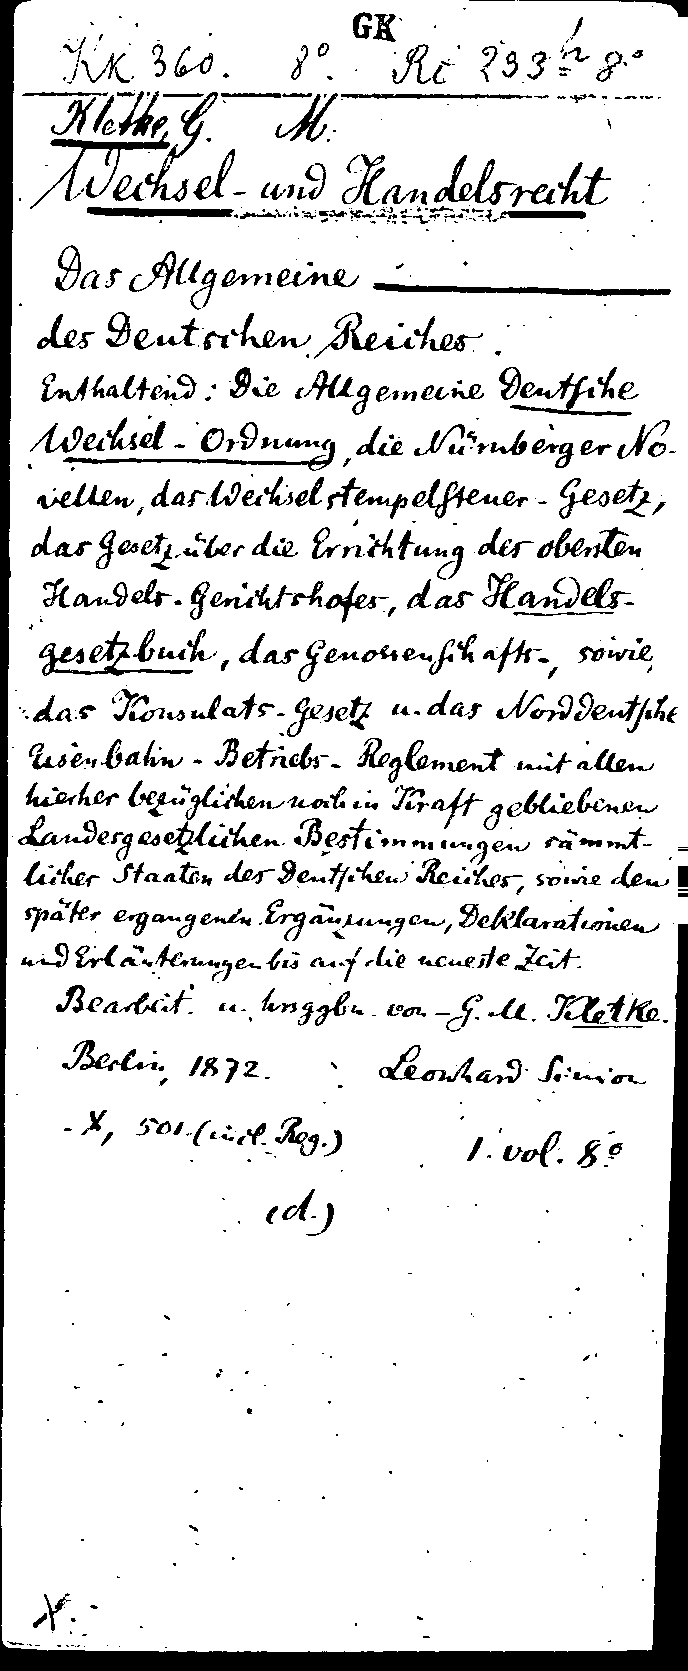 GK
KK 360. 8°. Rc 233ʰ 8°
Kletke, G. M.
Wechsel- und Handelsrecht
Das Allgemeine —
des Deutschen Reiches.
Enthaltend: Die Allgemeine Deutsche
Wechsel-Ordnung, die Nürnberger No-
vellen, das Wechselstempelsteuer-Gesetz,
das Gesetz über die Errichtung des obersten
Handels-Gerichtshofes, das Handels-
gesetzbuch, das Genossenschafts-, sowie
das Konsulats-Gesetz u. das Norddeutsche
Eisenbahn-Betriebs-Reglement mit allen
hierher bezüglichen noch in Kraft gebliebenen
Landesgesetzlichen Bestimmungen sämmt-
licher Staaten des Deutschen Reiches, sowie den
später ergangenen Ergänzungen, Deklarationen
und Erläuterungen bis auf die neueste Zeit.
Bearbeit. u. hrsggbn von – G. M. Kletke.
Berlin, 1872. Leonhard Simion
X, 501. (incl. Reg.) 1. vol. 8°
(d.)
X.